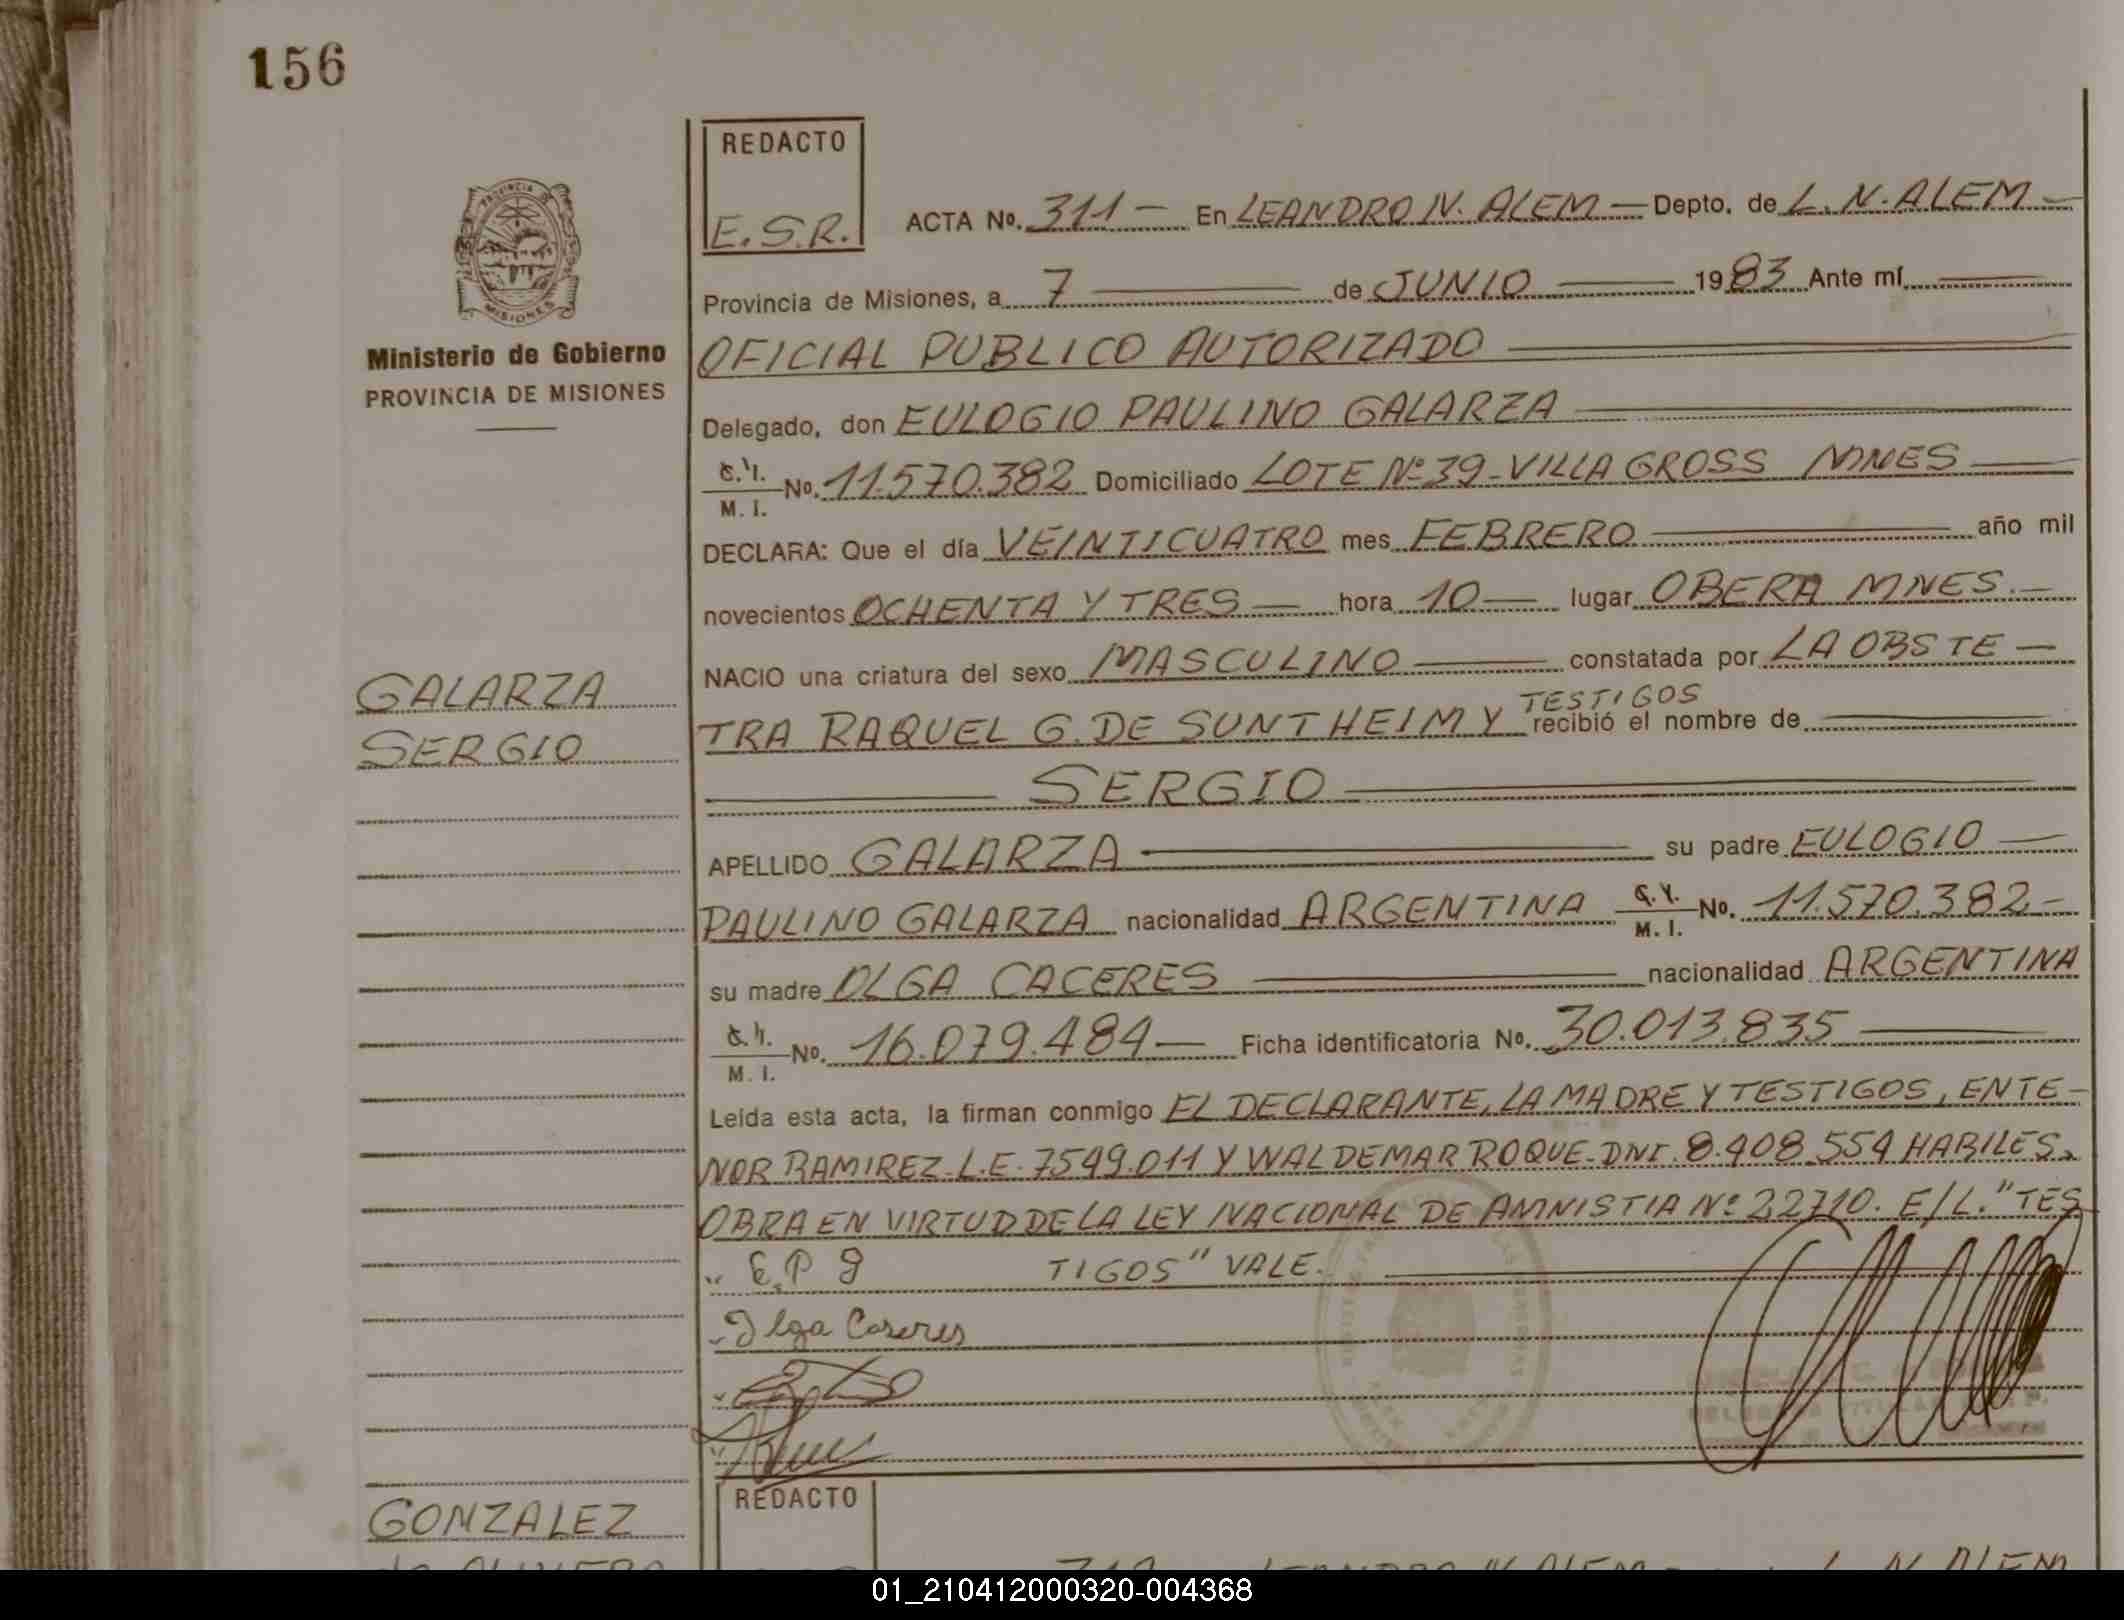 156
REDACTO
E.S.R.
ACTA No. 311 - En LEANDRO N. ALEM - Depto. de L. N. ALEM -
PROVINCIA DE
MISIONES
Provincia de Misiones, a 7 de JUNIO 1983 Ante mí
Ministerio de Gobierno
PROVINCIA DE MISIONES
OFICIAL PUBLICO AUTORIZADO
Delegado, don EULOGIO PAULINO GALARZA
C. I. / M. I. No. 11.570.382 Domiciliado LOTE Nº 39 - VILLA GROSS MNES
DECLARA: Que el día VEINTICUATRO mes FEBRERO año mil
novecientos OCHENTA Y TRES - hora 10 - lugar OBERA MNES. -
NACIO una criatura del sexo MASCULINO constatada por LA OBSTE -
GALARZA
SERGIO
TESTIGOS
TRA RAQUEL G. DE SUNTHEIM Y recibió el nombre de
SERGIO
APELLIDO GALARZA su padre EULOGIO
PAULINO GALARZA nacionalidad ARGENTINA C. I. / M. I. No. 11.570.382 -
su madre OLGA CACERES nacionalidad ARGENTINA
C. I. / M. I. No. 16.079.484 - Ficha identificatoria No. 30.013.835
Leída esta acta, la firman conmigo EL DECLARANTE, LA MADRE Y TESTIGOS, ENTE -
NOR RAMIREZ L.E. 7549.011 Y WALDEMAR ROQUE - DNI. 8.408.554 HABILES.
OBRA EN VIRTUD DE LA LEY NACIONAL DE AMNISTIA Nº 22710. E/L. "TES
E. P g TIGOS" VALE.
Olga Caseres
REDACTO
GONZALEZ
01_210412000320-004368